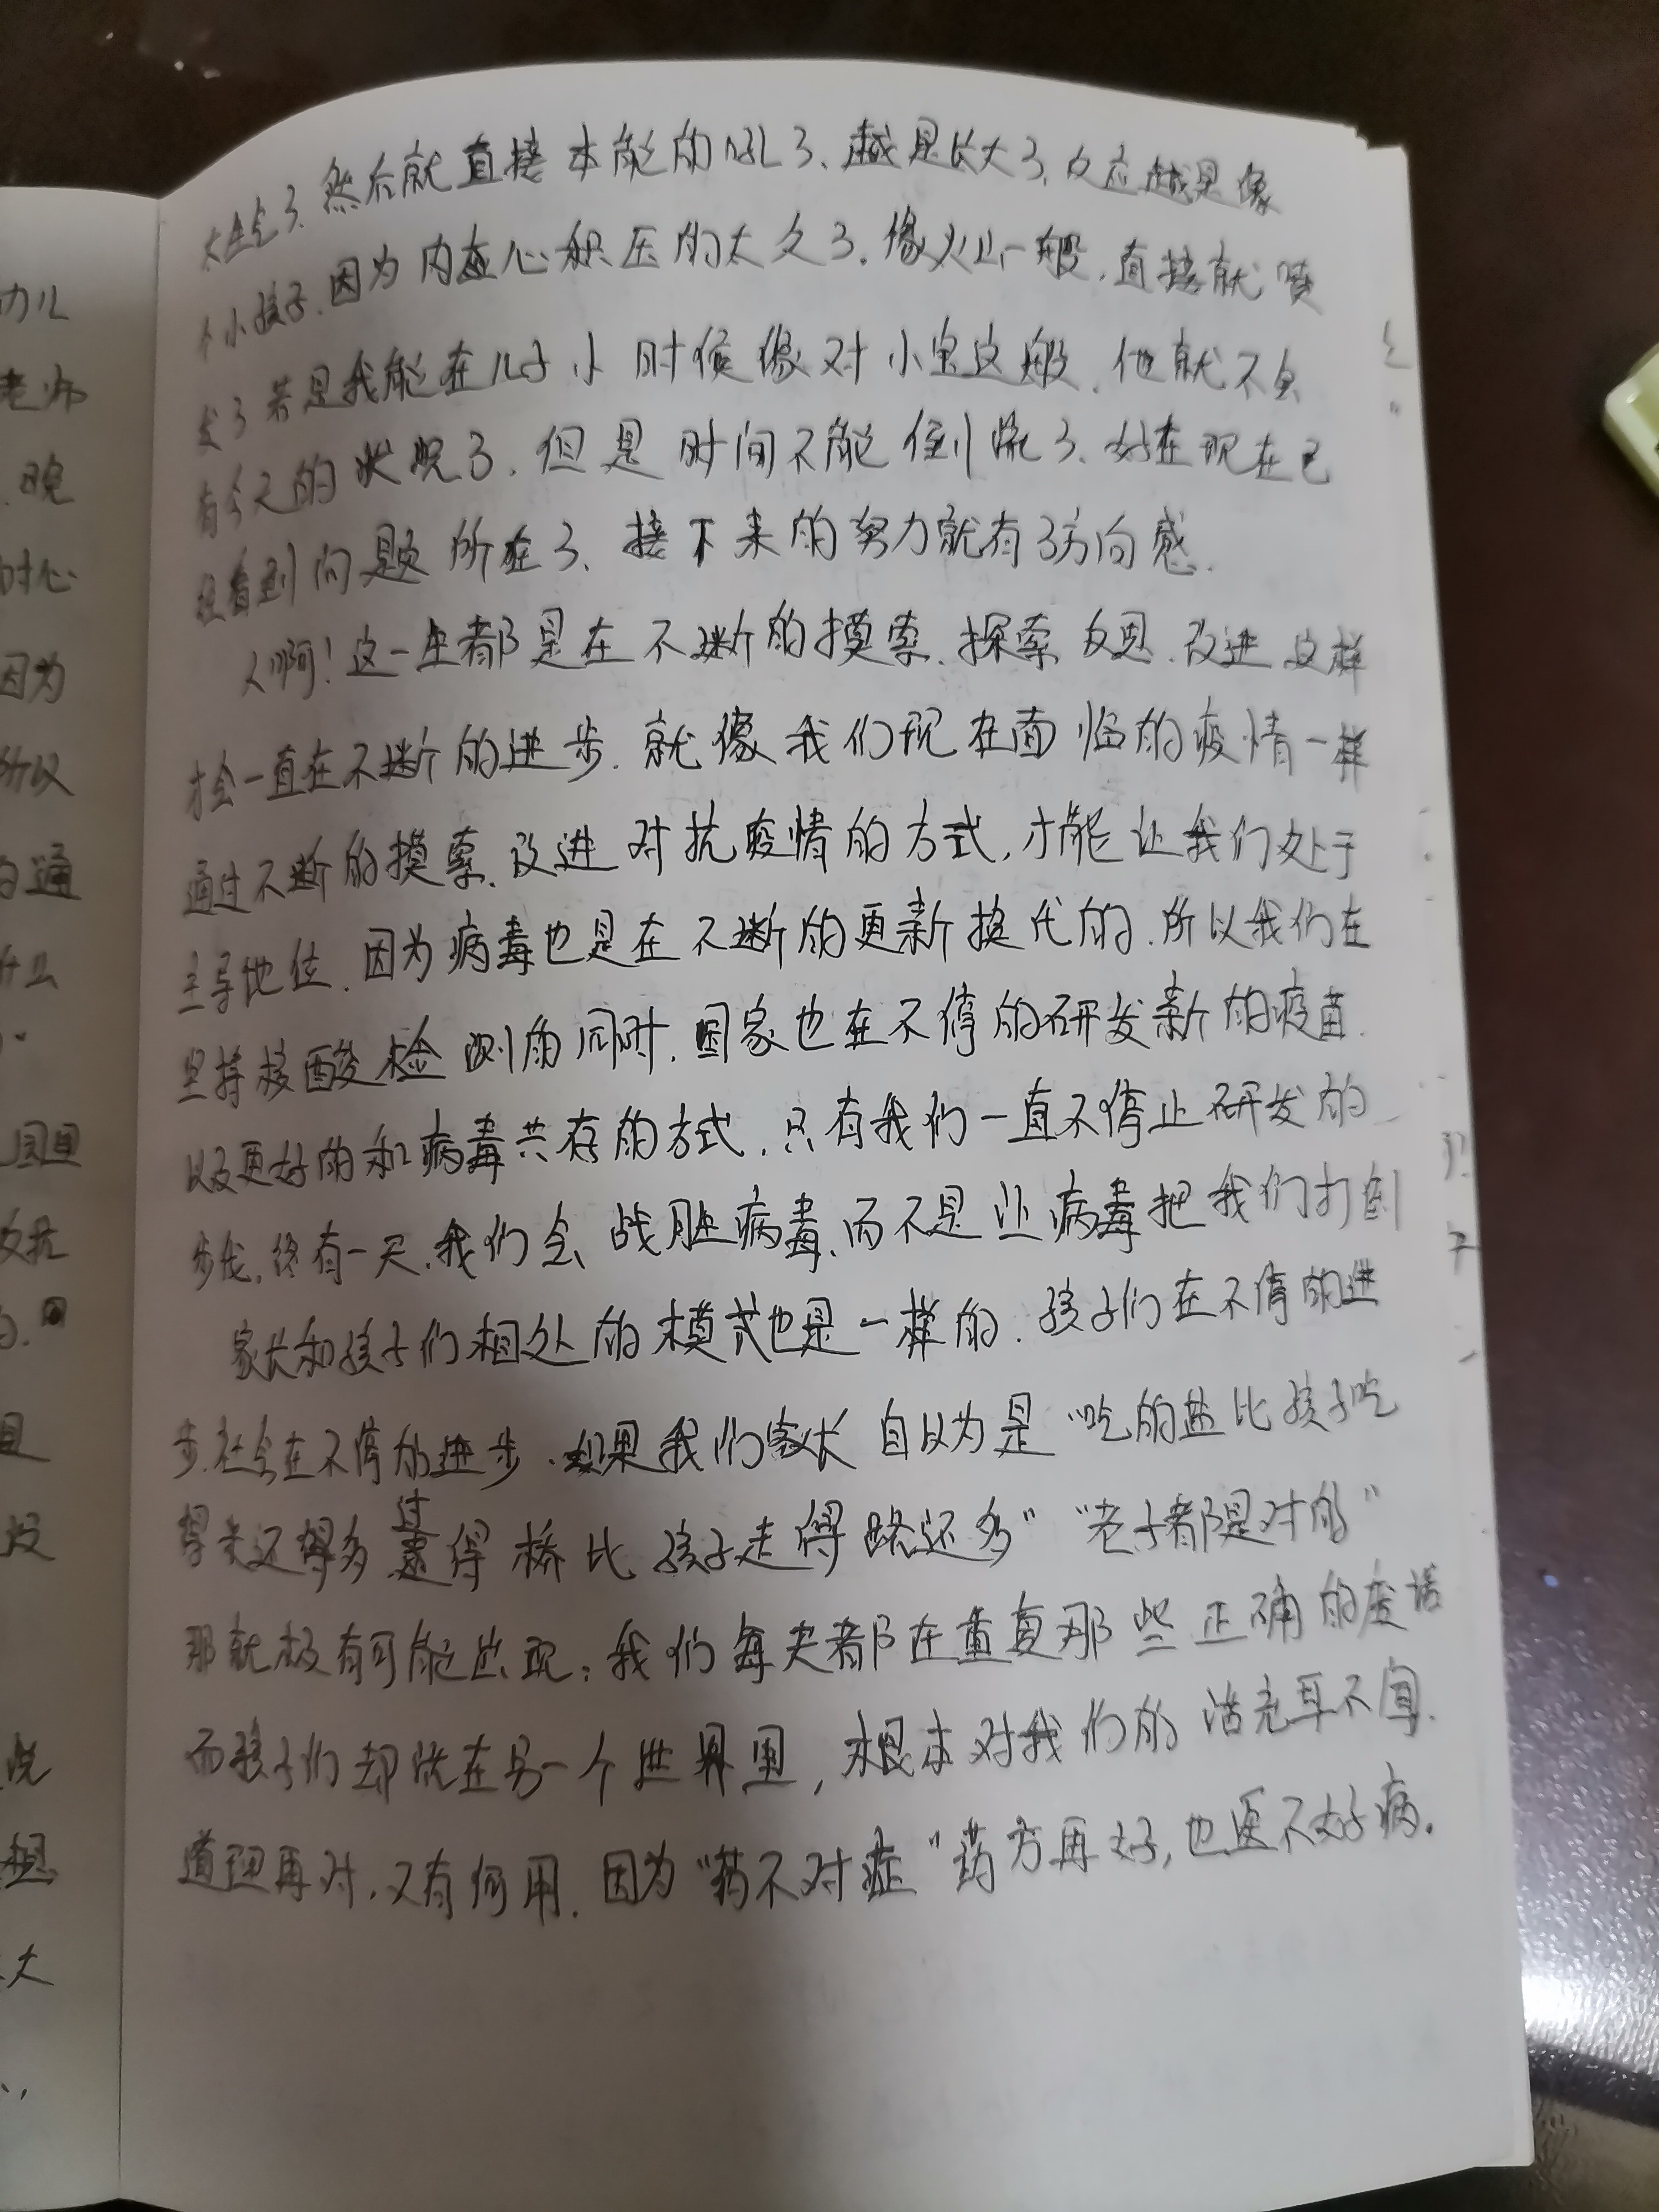 幼儿
老师
晚
时心
因为
所以
的通
什么
反抗
是
没
说
想
大
然后就直接本能的吼了、越是长大了、反应越是像
个小孩子、因为内在心积压的太久了、像火山一般、直接就喷
发了若是我能在儿子小时候像对小宝这般、他就不会
有今天的状况了、但是时间不能倒流了、好在现在已
经看到问题所在了、接下来的努力就有了方向感.
人啊!这一生都是在不断的摸索、探索反思、改进、这样
才会一直在不断的进步、就像我们现在面临的疫情一样
通过不断的摸索、改进对抗疫情的方式,才能让我们处于
主导地位、因为病毒也是在不断的更新换代的、所以我们在
坚持核酸检测的同时、国家也在不停的研发新的疫苗.
以及更好的和病毒共存的方式、只有我们一直不停止研发的
步伐,终有一天、我们会战胜病毒、而不是让病毒把我们打倒
家长和孩子们相处的模式也是一样的、孩子们在不停的进
步、社会在不停的进步、如果我们家长自以为是“吃的盐比孩子吃
得米还得多过得桥比孩子走得路还多”“老子都是对的”
那就极有可能出现:我们每天都在重复那些正确的废话
而孩子们却活在另一个世界里,根本对我们的话充耳不闻.
道理再对、又有何用.因为“药不对症”药方再好,也医不好病.